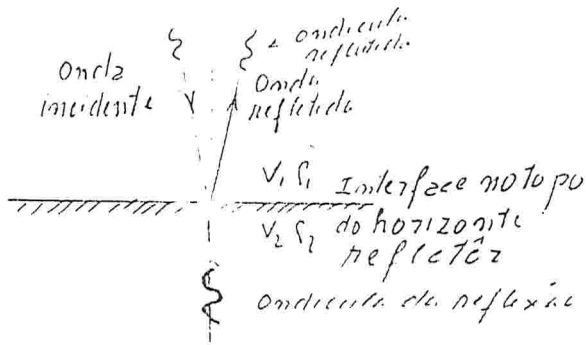 Onda
incidente
- ondicula
refletida
Onda
refletida
V₁ ρ₁ Interface no topo
V₂ ρ₂ do horizonte
refletôr
ondicula da reflexão